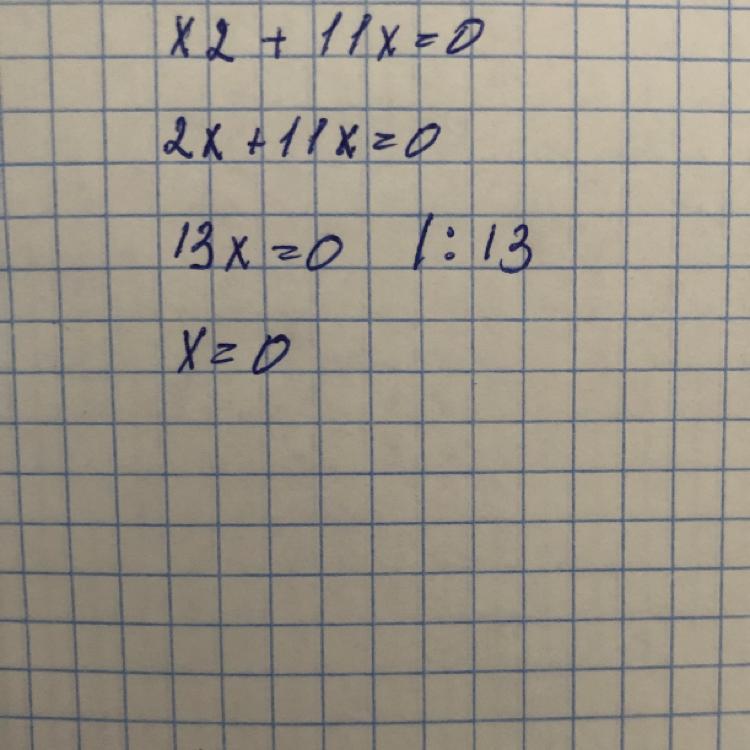 x2 + 11x = 0
2x + 11x = 0
13x = 0 / : 13
x = 0